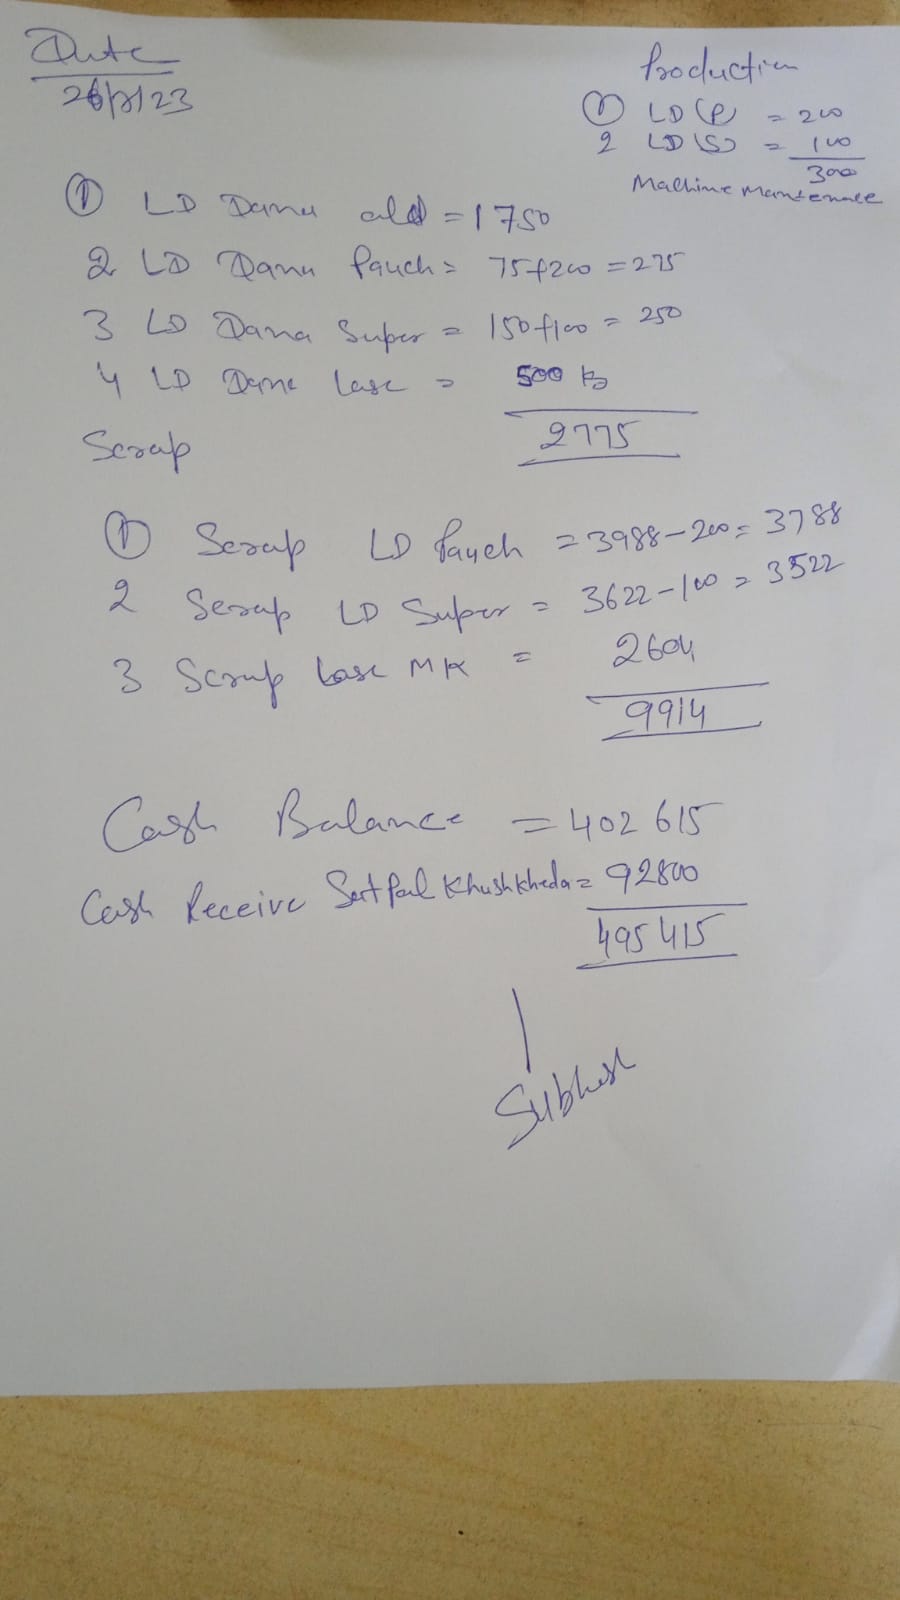 Date
26/7/23
Production
① LD (P) = 200
2 LD (S) = 100
300
Machine Maintenance
① LD Dana old = 1750
2 LD Dana Pauch = 75+200 = 275
3 LD Dana Super = 150+100 = 250
4 LD Dana Lase = 500 kg
2775
Scrap
① Scrap LD Pauch = 3988-200 = 3788
2 Scrap LD Super = 3622-100 = 3522
3 Scrap Lase MK = 2604
9914
Cash Balance = 402615
Cash Receive Satpal Khushkheda = 92800
495415
Subhash